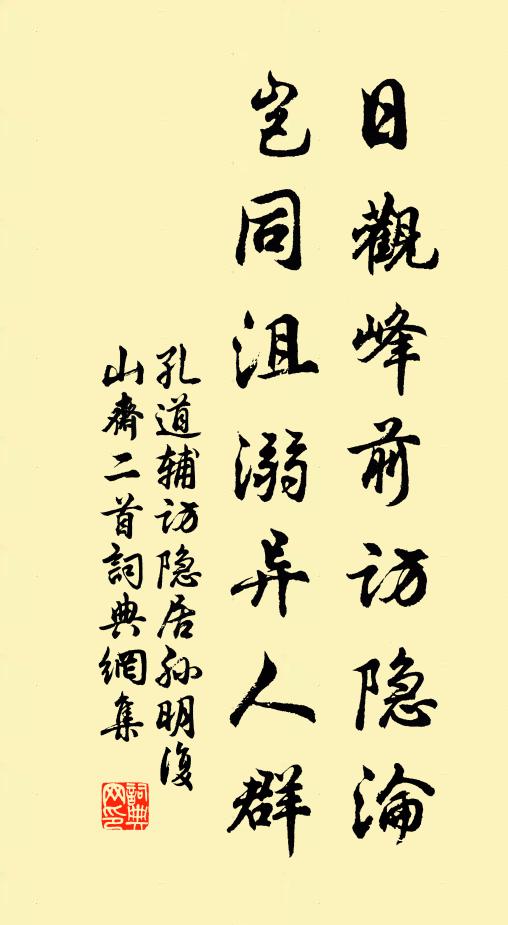 日觀峰前访隐淪
岂同沮溺异人群
孔道辅访隐居孙明復
山齋二首詞典網集
詞典网印